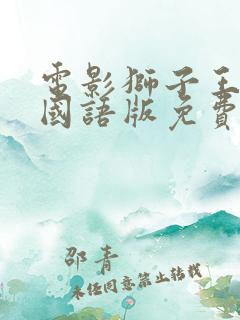 電影獅子王
國語版免費
邵青
未经同意禁止转载